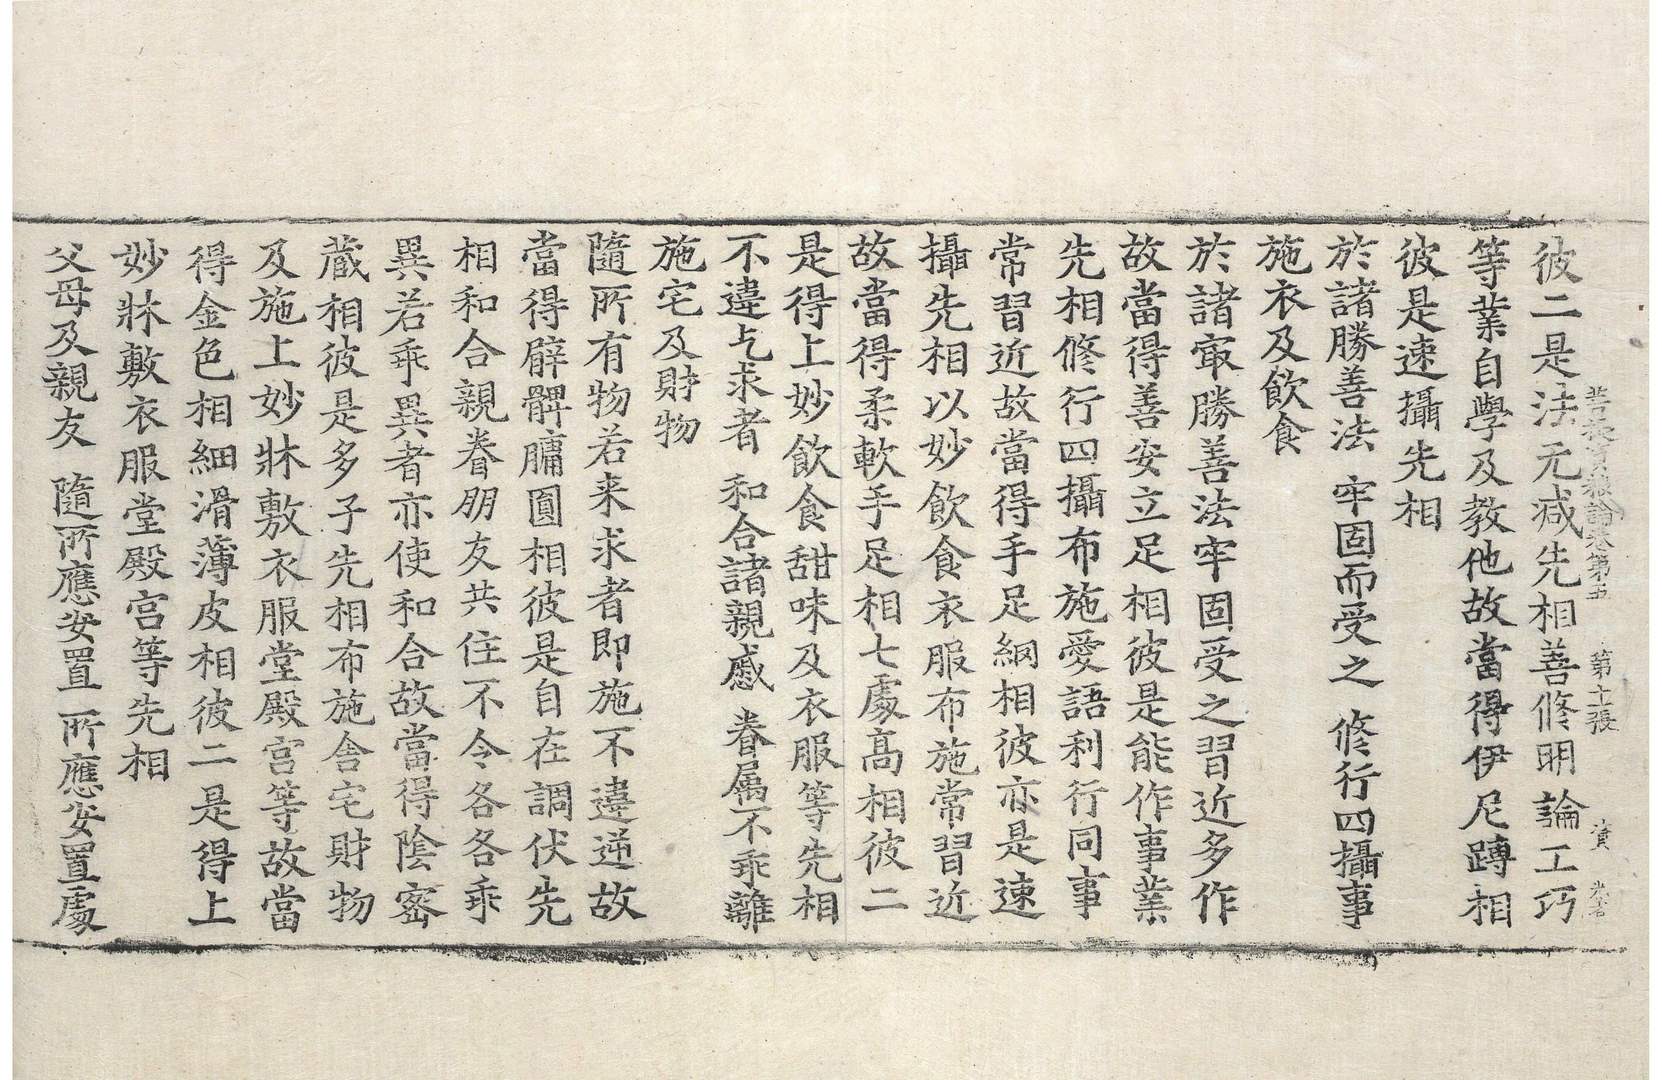 菩提資糧論卷第五 第十張 資
彼二是法无減先相善修明論工巧
等業自學及教他故當得伊尼蹲相
彼是速攝先相
於諸勝善法 牢固而受之 修行四攝事
施衣及飲食
於諸㝡勝善法牢固受之習近多作
故當得善安立足相彼是能作事業
先相修行四攝布施愛語利行同事
常習近故當得手足網相彼亦是速
攝先相以妙飲食衣服布施常習近
故當得柔軟手足相七處高相彼二
是得上妙飲食甜味及衣服等先相
不違乞求者 和合諸親慼 眷屬不乖離
施宅及財物
隨所有物若来求者即施不違逆故
當得臂髀𦟛圓相彼是自在調伏先
相和合親眷朋友共住不令各各乖
異若乖異者亦使和合故當得陰密
蔵相彼是多子先相布施舎宅財物
及施上妙牀敷衣服堂殿宮等故當
得金色相細滑薄皮相彼二是得上
妙牀敷衣服堂殿宮等先相
父母及親友 隨所應安置 所應安置處